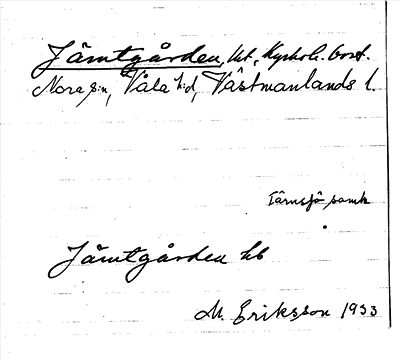 Jämtgården, hbt, Kyrkok. bost.
Nora s:n, Våla h:d, Västmanlands l.
Tärnsjö samh
Jämtgården hb
M. Eriksson 1933